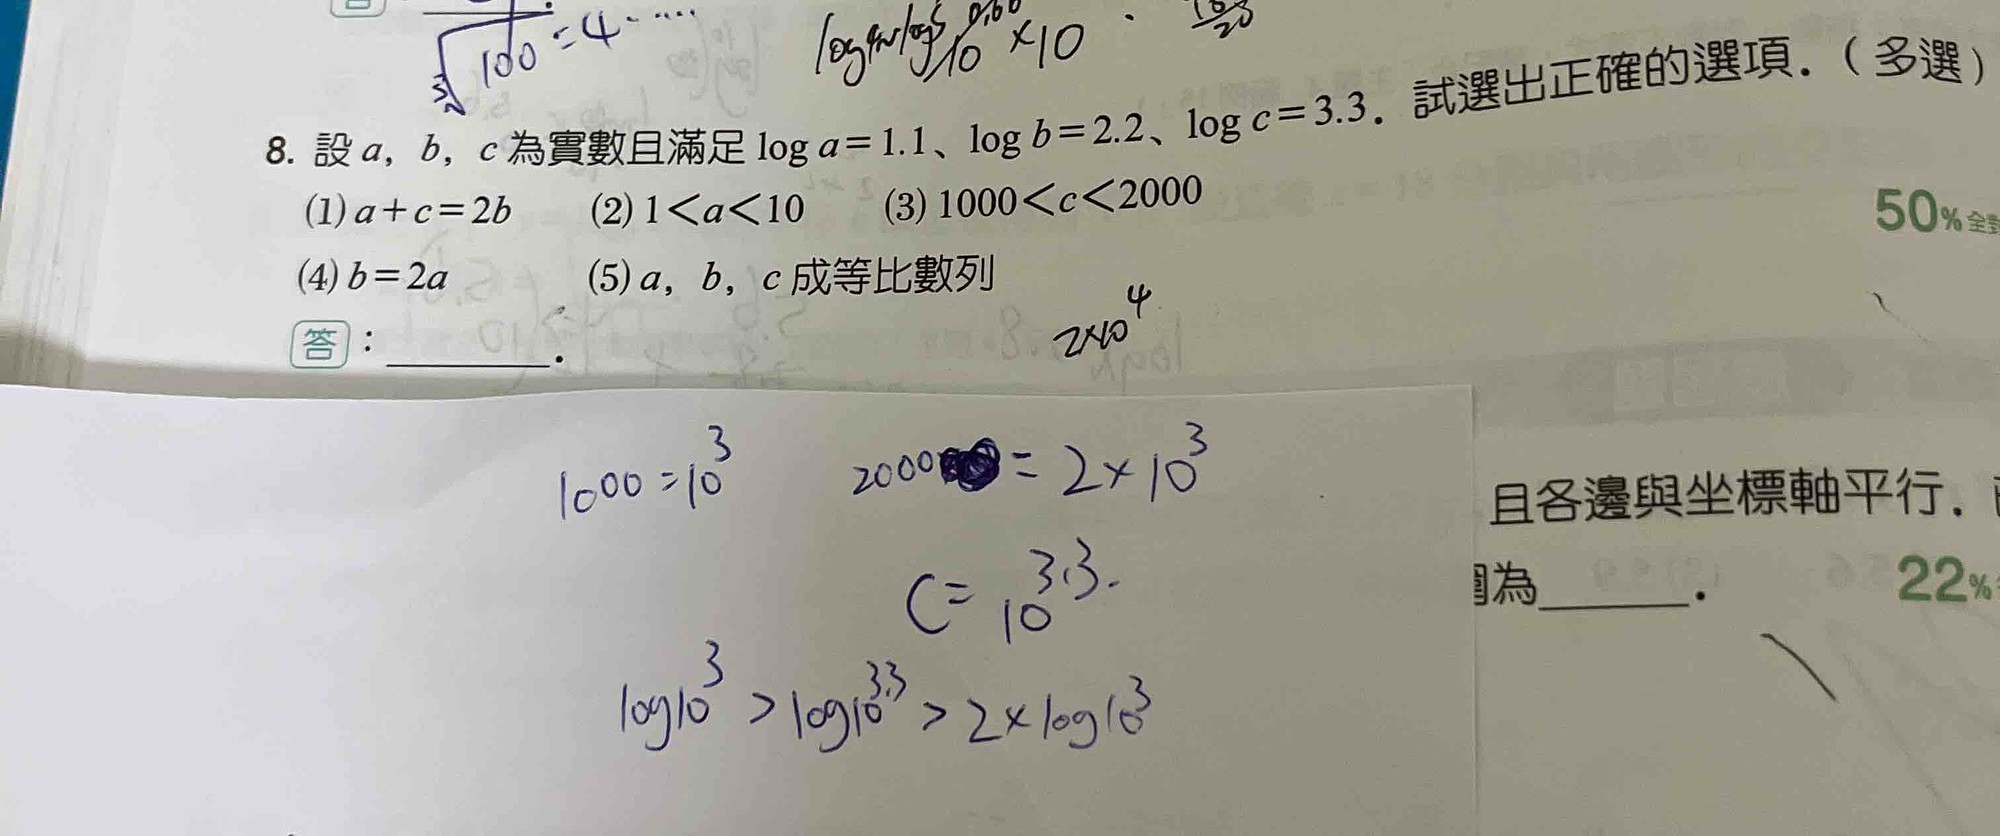 ∛100 = 4.....
×10
8. 設 a，b，c 為實數且滿足 log a=1.1、log b=2.2、log c=3.3．試選出正確的選項．（多選）
(1) a+c=2b (2) 1<a<10 (3) 1000<c<2000
50% 全對
(4) b=2a (5) a，b，c 成等比數列
2×10⁴
答：________．
1000=10³ 2000 = 2×10³
C= 10^3.3.
log10³ > log10^3.3 > 2×log10³
且各邊與坐標軸平行．
圍為________．
22%